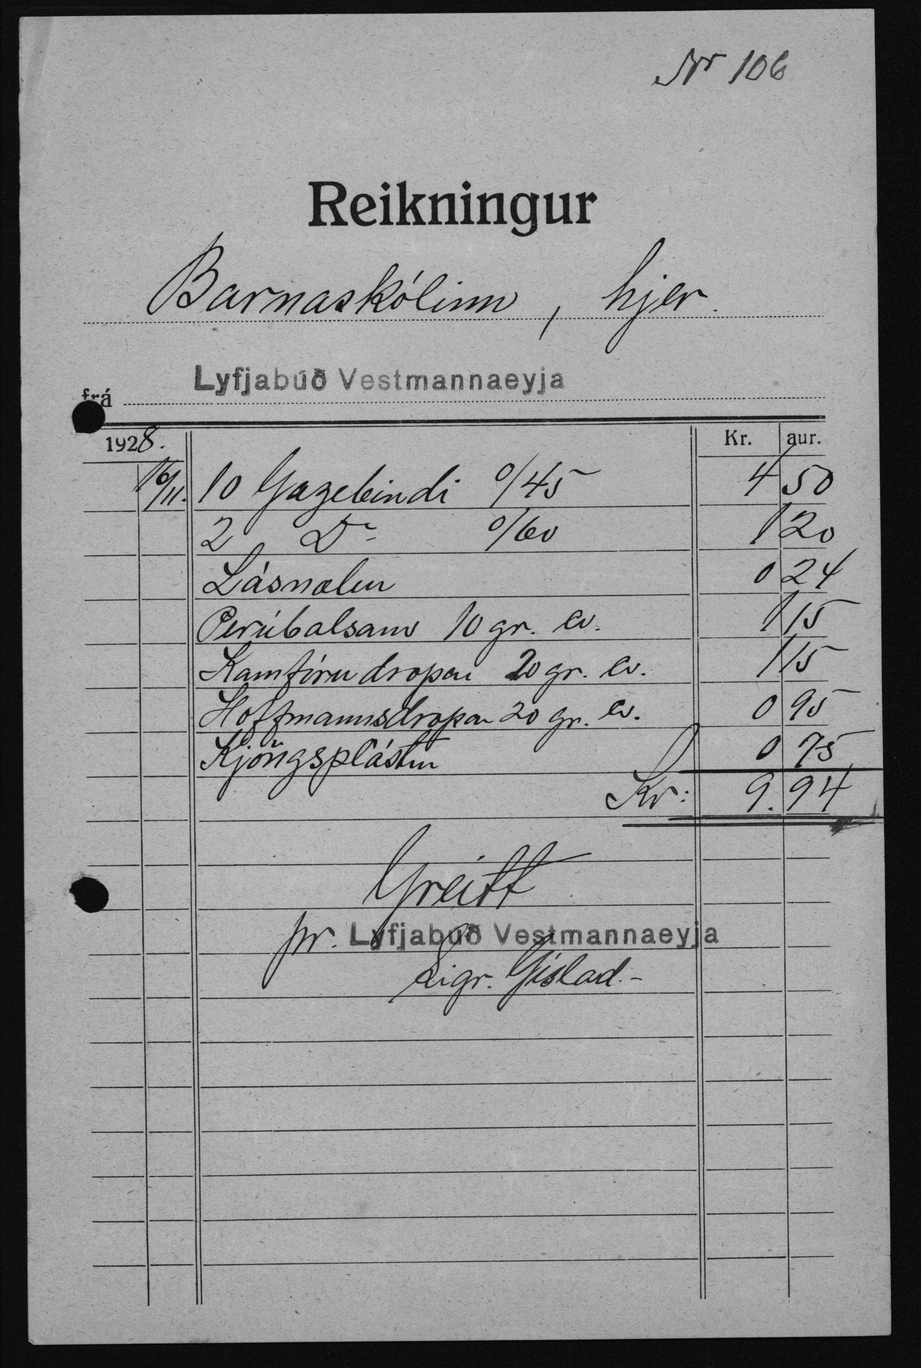 Nr 106
Reikningur
Barnaskólinn, hjer.
frá Lyfjabúð Vestmannaeyja
1928. Kr. aur.
16/11. 10 Gazebindi º/45 4 50
2 Dº º/60 1 20
Lásnælur 0 24
Perúbalsam 10 gr. 1 15
Kamfórudropar 20 gr. 1 15
Hoffmannsdropar 20 gr. 0 95
Kjöngsplástur 0 75
Kr: 9.94
Greitt
pr. Lyfjabúð Vestmannaeyja
Sigr. Gíslad.-